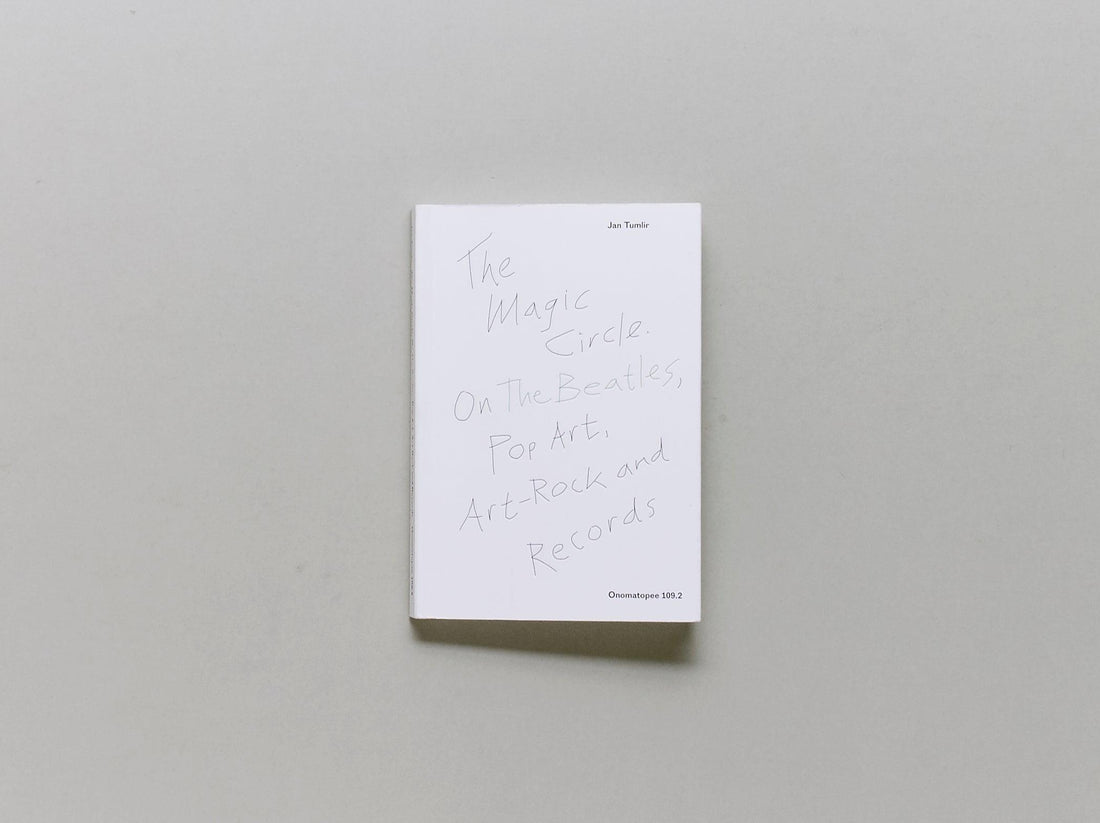 Jan Tumlir
The
Magic
Circle.
On The Beatles,
Pop Art,
Art-Rock and
Records
Onomatopee 109.2